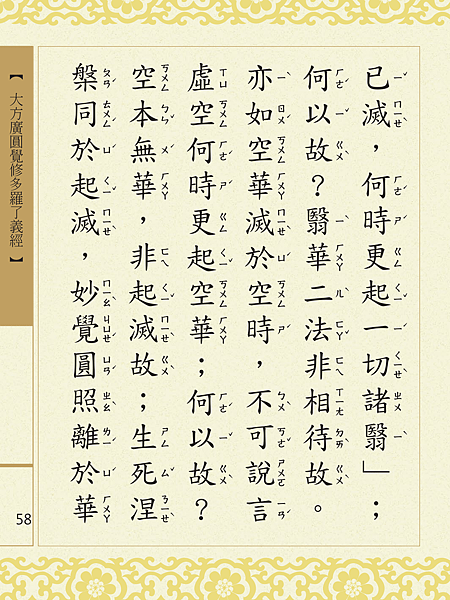 已滅，何時更起一切諸翳」；
何以故？翳華二法非相待故。
亦如空華滅於空時，不可說言
虛空何時更起空華；何以故？
空本無華，非起滅故；生死涅
槃同於起滅，妙覺圓照離於華
【大方廣圓覺修多羅了義經】
58